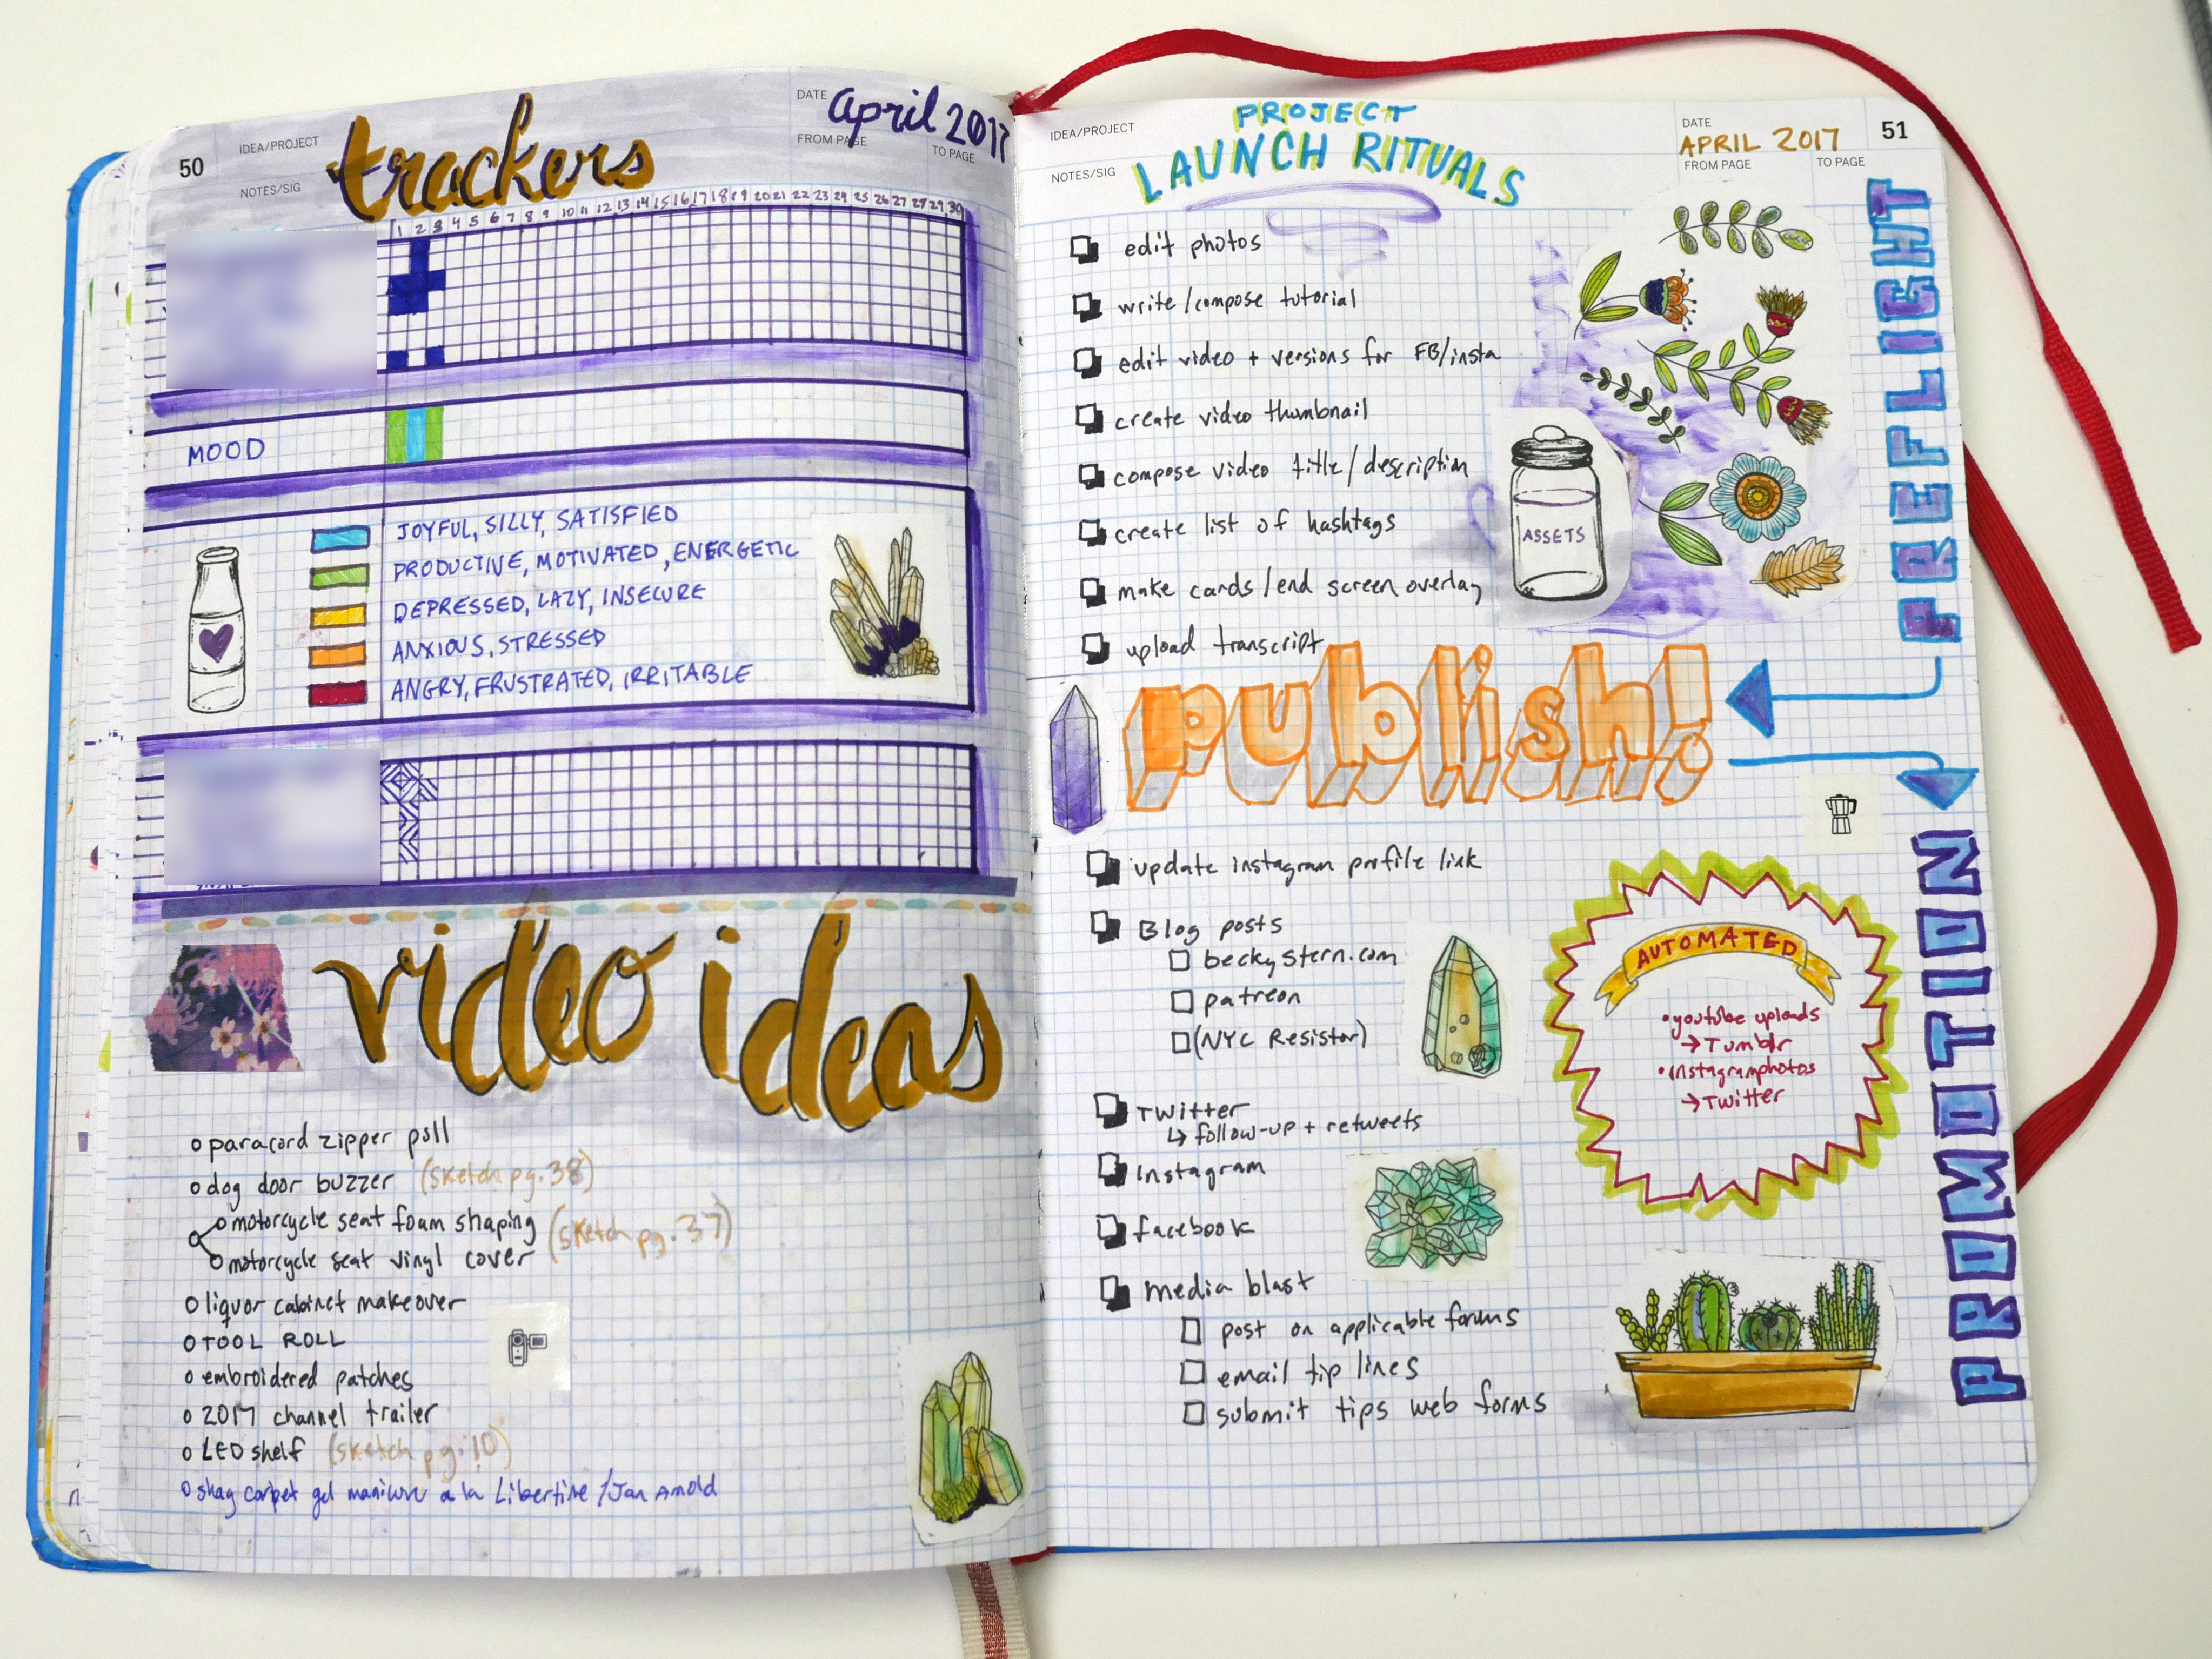 50
IDEA/PROJECT
NOTES/SIG
trackers
DATE
april 2017
FROM PAGE
TO PAGE
1 2 3 4 5 6 7 8 9 10 11 12 13 14 15 16 17 18 19 20 21 22 23 24 25 26 27 28 29 30
MOOD
JOYFUL, SILLY, SATISFIED
PRODUCTIVE, MOTIVATED, ENERGETIC
DEPRESSED, LAZY, INSECURE
ANXIOUS, STRESSED
ANGRY, FRUSTRATED, IRRITABLE
video ideas
paracord zipper pull
dog door buzzer (sketch pg. 38)
motorcycle seat foam shaping
motorcycle seat vinyl cover
(sketch pg. 37)
liquor cabinet makeover
TOOL ROLL
embroidered patches
2017 channel trailer
LED shelf (sketch pg. 10)
shag carpet gel manicure a la Libertine / Jan Arnold
IDEA/PROJECT
NOTES/SIG
PROJECT
LAUNCH RITUALS
DATE
APRIL 2017
FROM PAGE
TO PAGE
51
PREFLIGHT
edit photos
write/compose tutorial
edit video + versions for FB/insta
create video thumbnail
compose video title/description
create list of hashtags
make cards/end screen overlay
upload transcript
ASSETS
publish!
PROMOTION
update instagram profile link
Blog posts
beckystern.com
patreon
(NYC Resistor)
Twitter
↳ follow-up + retweets
Instagram
facebook
media blast
post on applicable forums
email tip lines
submit tips web forms
AUTOMATED
• youtube uploads
→ Tumblr
• instagram photos
→ Twitter